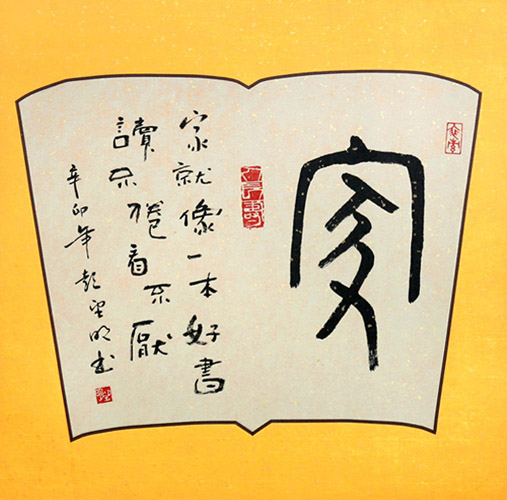 家
家就像一本好書
讀不倦看不厭
辛卯年彭